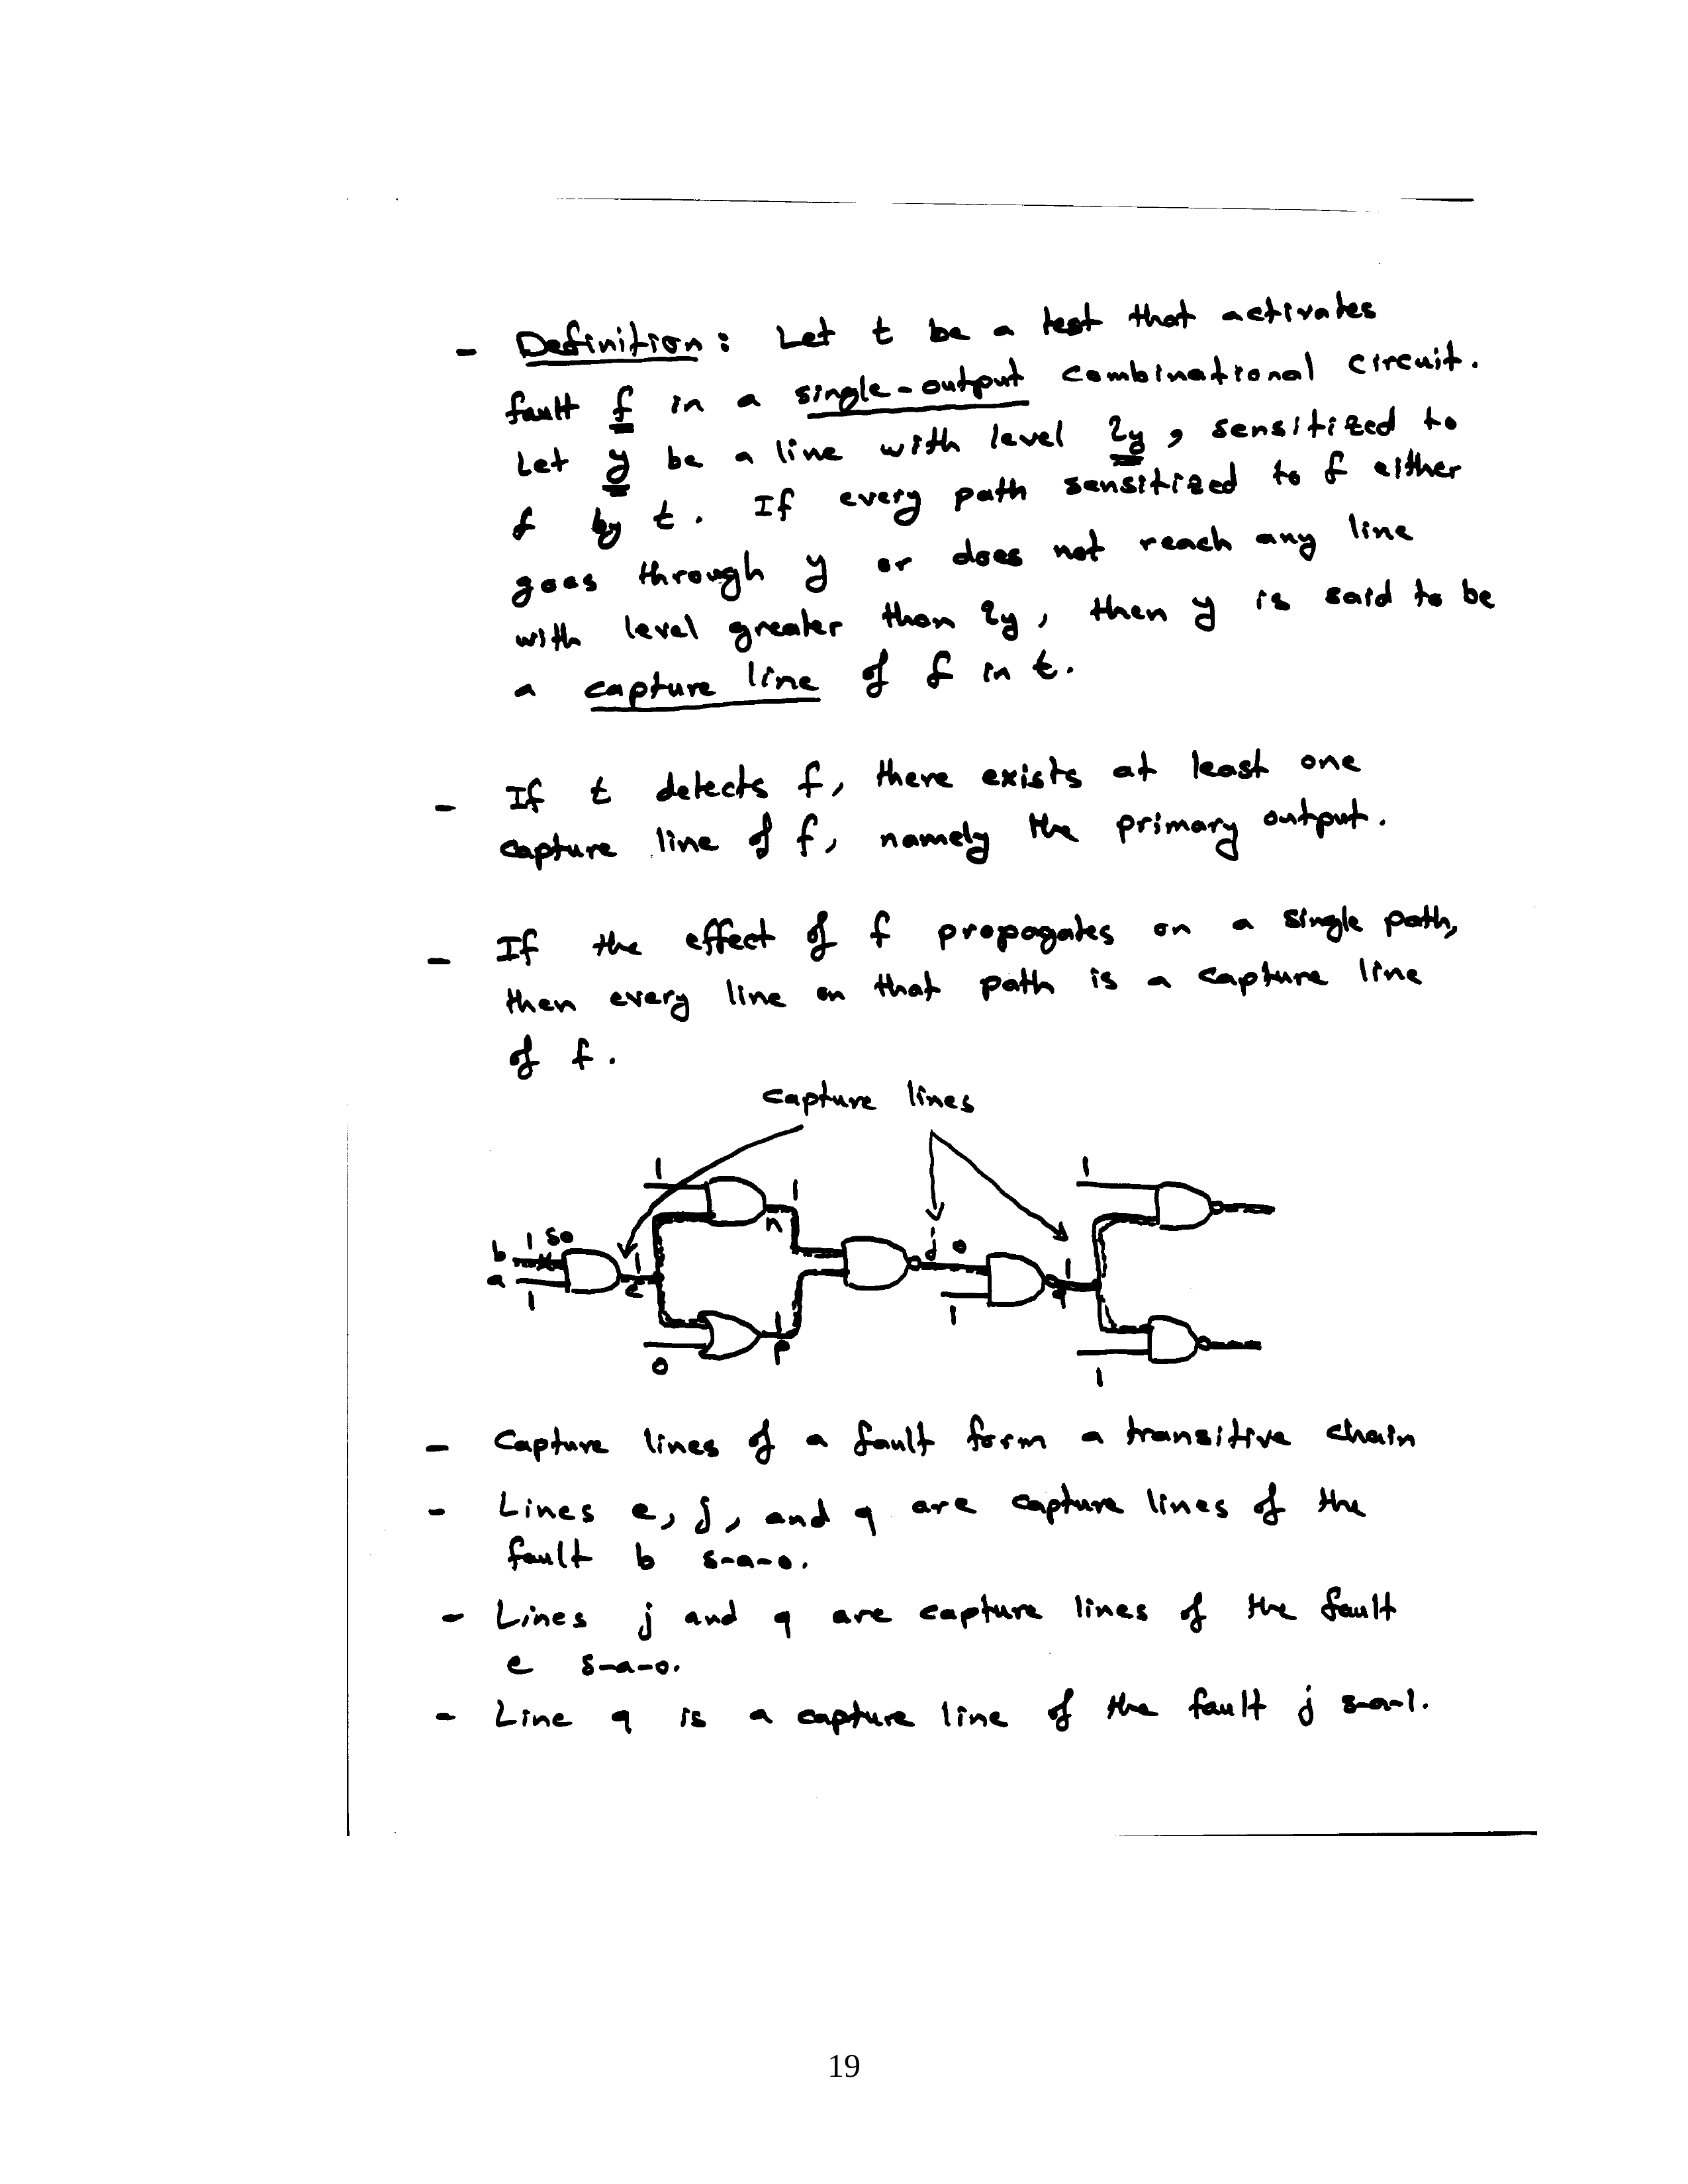 - Definition: Let t be a test that activates
fault f in a single-output combinational circuit.
Let y be a line with level ly, sensitized to
f by t. If every path sensitized to f either
goes through y or does not reach any line
with level greater than ly, then y is said to be
a capture line of f in t.
- If t detects f, there exists at least one
capture line of f, namely the primary output.
- If the effect of f propagates on a single path,
then every line on that path is a capture line
of f.
capture lines
1 1 1
n
b 1 s0 j 0
a 1 e 1 q
1 1
1 p
0 1
- Capture lines of a fault form a transitive chain
- Lines e, j, and q are capture lines of the
fault b s-a-0.
- Lines j and q are capture lines of the fault
e s-a-0.
- Line q is a capture line of the fault j s-a-1.
19